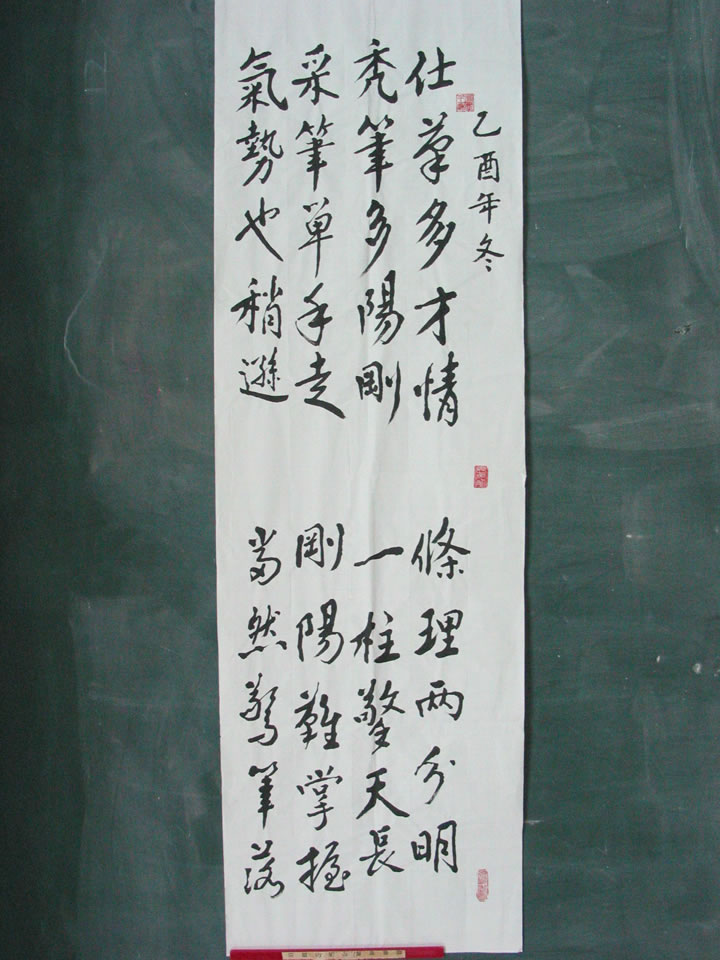 乙酉年冬
仕筆多才情 條理两分明
禿筆多陽剛 一柱擎天長
采筆单手走 剛陽難掌握
氣勢也稍遜 當然驚筆落